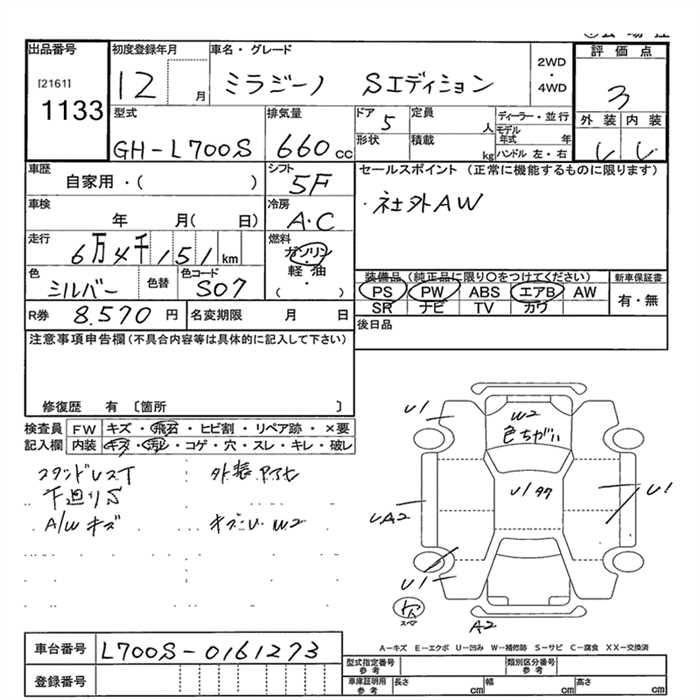 出品番号
[2161]
1133
初度登録年月
12 月
車名・グレード
ミラジーノ Sエディション
2WD
・
4WD
評価点
3
外装 内装
型式
GH-L700S
排気量
660cc
ドア
5
定員
人
形状
積載
kg
ディーラー・並行
モデル年式 年
ハンドル 左・右
車歴
自家用・( )
シフト
5F
セールスポイント (正常に機能するものに限ります)
・社外AW
車検
年 月( 日)
冷房
A・C
走行
6万4千151km
燃料
ガソリン
・
軽油
( )
色
シルバー
色替
色コード
S07
装備品(純正品に限り○をつけてください)
PS PW ABS エアB AW
SR ナビ TV カワ
新車保証書
有・無
R券
8.570 円
名変期限 月 日
後日品
注意事項申告欄(不具合内容等は具体的に記入して下さい)
修復歴 有 〔箇所 〕
検査員記入欄
FW キズ・飛石・ヒビ割・リペア跡・×要
内装 キズ・汚レ・コゲ・穴・スレ・キレ・破レ
スタンドレスT
下廻りS
A/Wキズ
キズ・U W2
U1
W2
色ちがい
U1
UA2
U1
A2
A-キズ E-エクボ U-凹み W-補修跡 S-サビ C-腐食 XX-交換済
車台番号
L700S-0161273
登録番号
型式指定番号
参考
類別区分番号
参考
車庫証明用
参考
長さ cm
幅 cm
高さ cm